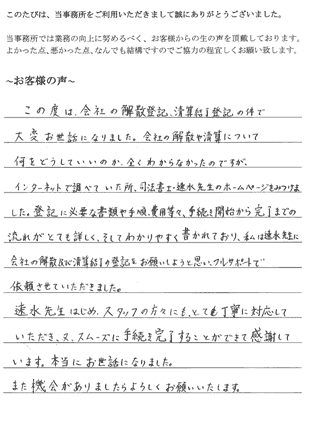 このたびは、当事務所をご利用いただきまして誠にありがとうございました。
当事務所では業務の向上に努めるべく、お客様からの生の声を頂戴しております。
よかった点、悪かった点、なんでも結構ですのでご協力の程宜しくお願い致します。
~お客様の声~
この度は、会社の解散登記、清算結了登記の件で
大変お世話になりました。会社の解散や清算について
何をどうしていいのか、全くわからなかったのですが、
インターネットで調べていた所、司法書士・速水先生のホームページをみつけま
した。登記に必要な書類や手順、費用等々、手続き開始から完了までの
流れがとても詳しく、そしてわかりやすく書かれており、私は速水先生に
会社の解散及び清算結了の登記をお願いしようと思い、フルサポートで
依頼させていただきました。
速水先生はじめ、スタッフの方々にも、とても丁寧に対応して
いただき、又、スムーズに手続を完了することができて感謝して
います。本当にお世話になりました。
また機会がありましたらよろしくお願いいたします。